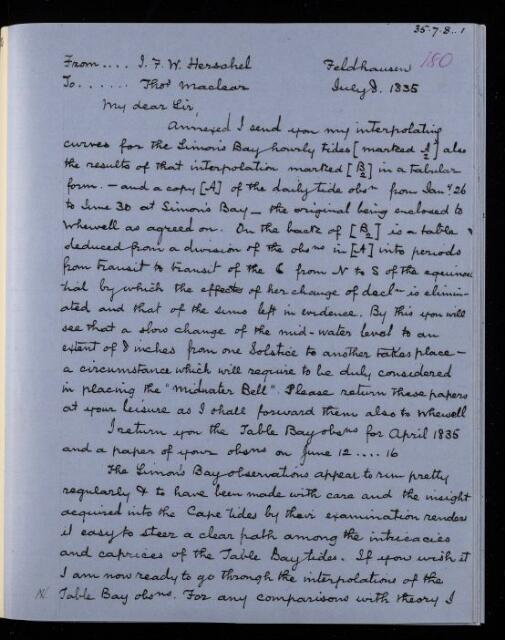 35.7.8..1
180
From.... J. F. W. Herschel Feldhausen
To...... Thos Maclear July 8. 1835
My dear Sir,
Annexed I send you my interpolating
curves for the Simon's Bay hourly tides [marked A/2] also
the results of that interpolation marked [B/2] in a tabular
form. - and a copy [A] of the daily tide obsns from Jany 26
to June 30 at Simon's Bay - the original being enclosed to
Whewell as agreed on. On the back of [B/2] is a table
deduced from a division of the obsns in [A] into periods
from transit to transit of the ☾ from N to S of the equinoc
tial by which the effects of her change of decln is elimin-
ated and that of the suns left in evidence. By this you will
see that a slow change of the mid-water level to an
extent of 8 inches from one Solstice to another takes place -
a circumstance which will require to be duly considered
in placing the "Midwater Bell". Please return these papers
at your leisure as I shall forward them also to Whewell
I return you the Table Bay obsns for April 1835
and a paper of your obsns on June 12....16
The Simon's Bay observations appear to run pretty
regularly & to have been made with care and the insight
acquired into the Cape tides by their examination renders
it easy to steer a clear path among the intricacies
and caprices of the Table Bay tides. If you wish it
I am now ready to go through the interpolations of the
Table Bay obsns. For any comparisons with theory I